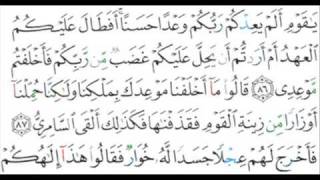 يَٰقَوْمِ أَلَمْ يَعِدْكُمْ رَبُّكُمْ وَعْدًا حَسَنًا ۚ أَفَطَالَ عَلَيْكُمُ
ٱلْعَهْدُ أَمْ أَرَدتُّمْ أَن يَحِلَّ عَلَيْكُمْ غَضَبٌ مِّن رَّبِّكُمْ فَأَخْلَفْتُم
مَّوْعِدِى ٨٦ قَالُوا۟ مَآ أَخْلَفْنَا مَوْعِدَكَ بِمَلْكِنَا وَلَٰكِنَّا حُمِّلْنَآ
أَوْزَارًا مِّن زِينَةِ ٱلْقَوْمِ فَقَذَفْنَٰهَا فَكَذَٰلِكَ أَلْقَى ٱلسَّامِرِىُّ ٨٧
فَأَخْرَجَ لَهُمْ عِجْلًا جَسَدًا لَّهُۥ خُوَارٌ فَقَالُوا۟ هَٰذَآ إِلَٰهُكُمْ